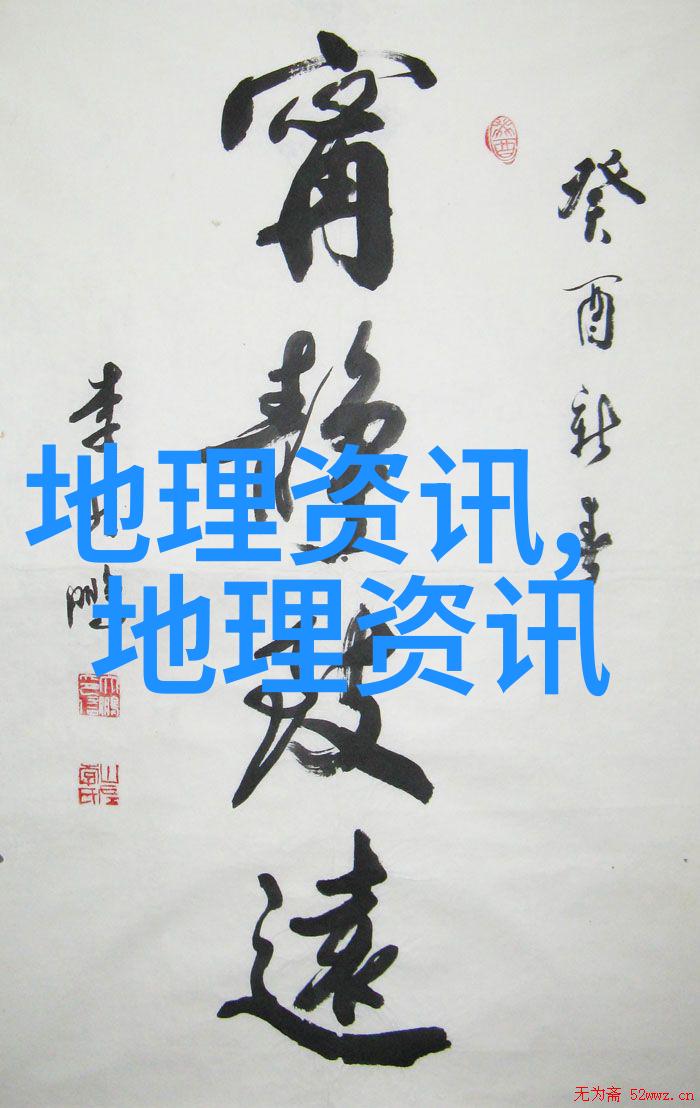 癸酉新春
甯靜致遠
李月鹏
地理资讯,
地理资讯
无为斋 52wwz.cn